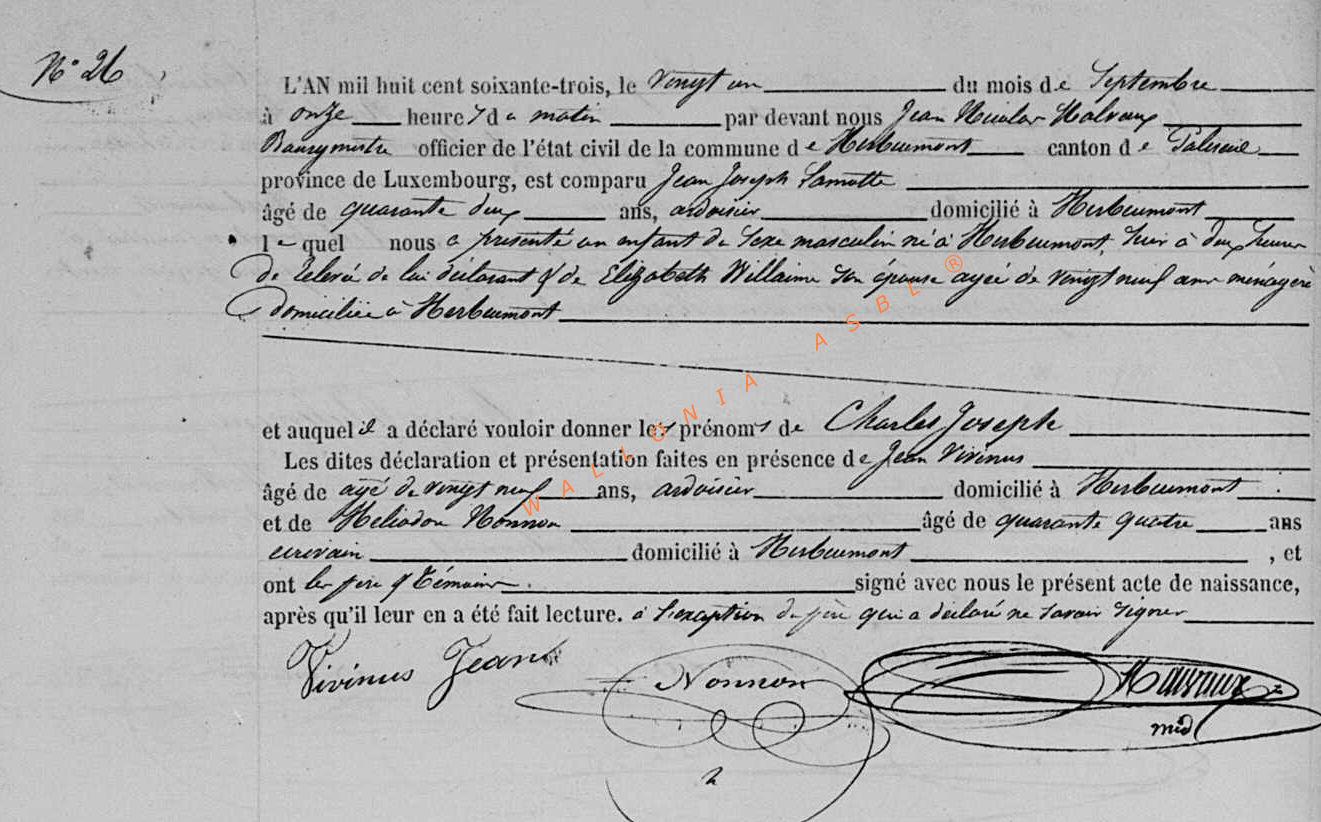 N° 26
L'AN mil huit cent soixante-trois, le vingt un du mois de Septembre
à onze heures du matin par devant nous Jean Nicolas Halvaux
Bourgmestre officier de l'état civil de la commune de Herbeumont canton de Paliseul
province de Luxembourg, est comparu Jean Joseph Lamotte
âgé de quarante deux ans, ardoisier domicilié à Herbeumont
lequel nous a présenté un enfant du Sexe masculin né à Herbeumont, hier à deux heures
de relevée de lui déclarant & de Elizabeth Willaime son épouse agée de vingt neuf ans ménagère
domiciliée à Herbeumont
et auquel il a déclaré vouloir donner les prénoms de Charles Joseph
Les dites déclaration et présentation faites en présence de Jean Vivinus
âgé de agé de vingt neuf ans, ardoisier domicilié à Herbeumont
et de Heliodore Nonnon âgé de quarante quatre ans
écrivain domicilié à Herbeumont , et
ont les père & témoins signé avec nous le présent acte de naissance,
après qu'il leur en a été fait lecture. à l'exception du père qui a déclaré ne savoir signer
Vivinus Jean Nonnon
WALLONIA ASBL ®